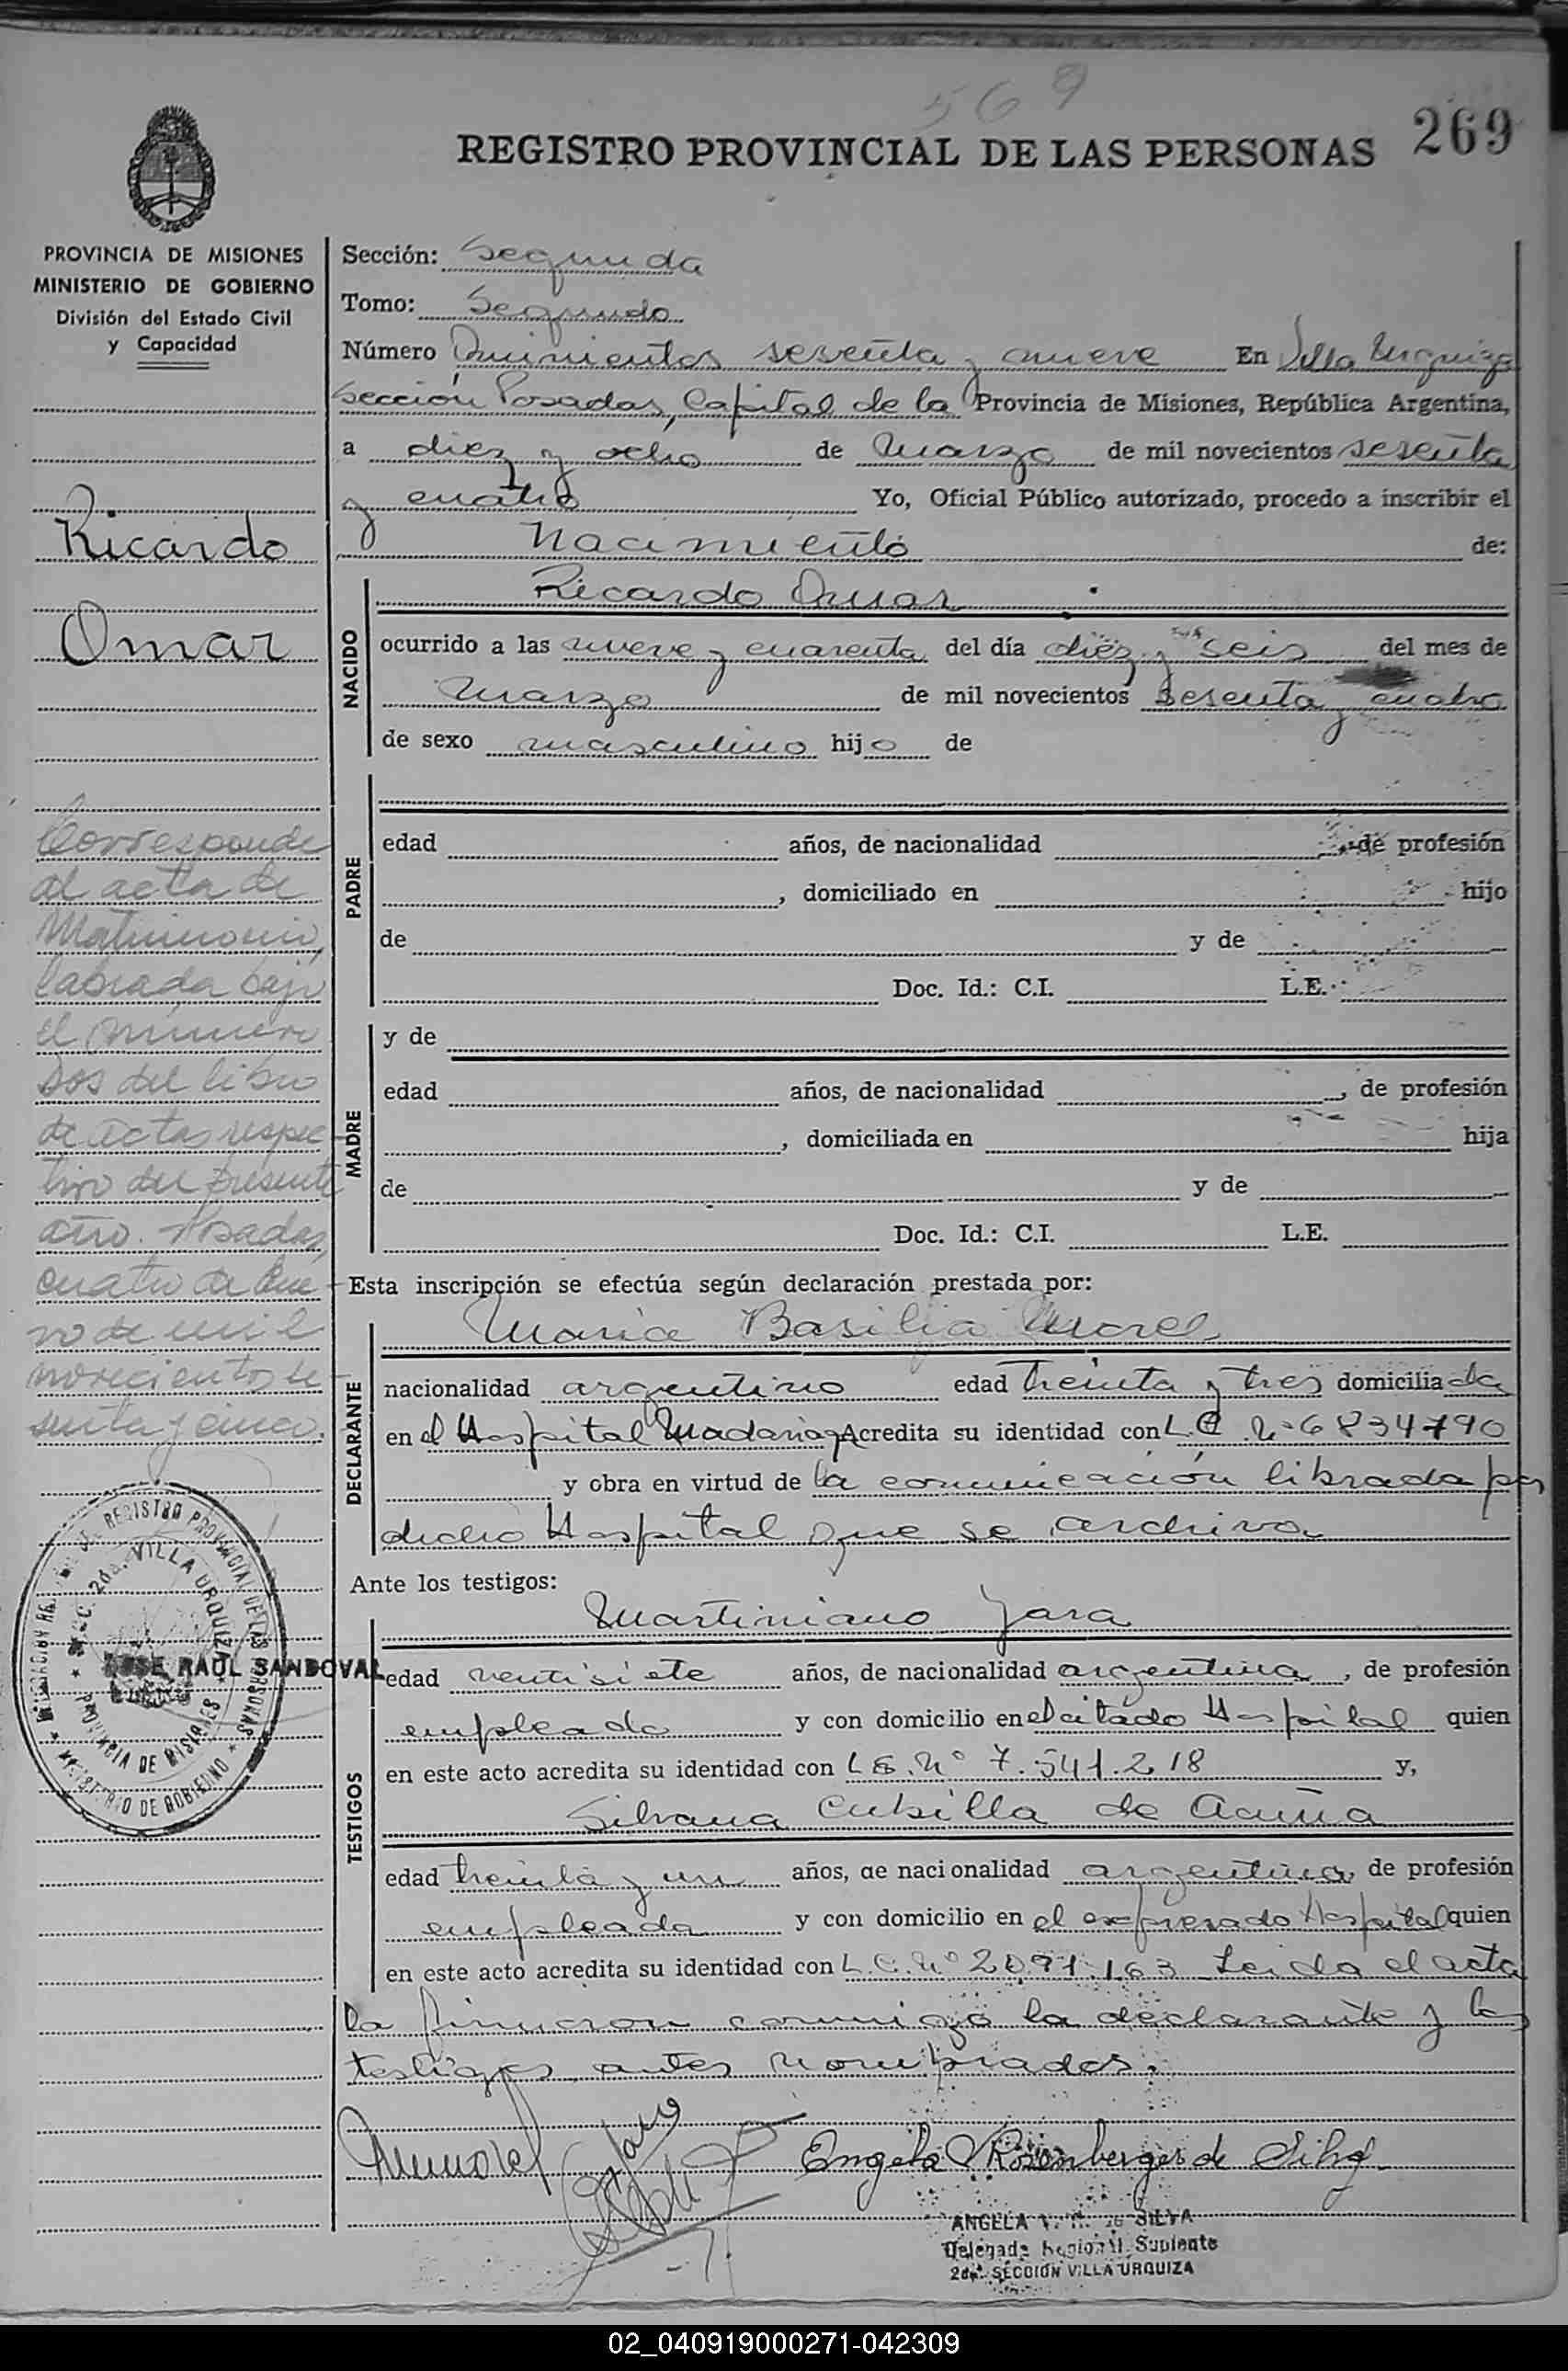 569
REGISTRO PROVINCIAL DE LAS PERSONAS 269
PROVINCIA DE MISIONES
MINISTERIO DE GOBIERNO
División del Estado Civil
y Capacidad
Sección: Segunda
Tomo: Segundo
Número Quinientos sesenta y nueve En Villa Urquiza
Sección Posadas, Capital de la Provincia de Misiones, República Argentina,
a diez y ocho de Marzo de mil novecientos sesenta
y cuatro Yo, Oficial Público autorizado, procedo a inscribir el
Nacimiento de:
Ricardo
Omar
NACIDO
Ricardo Omar
ocurrido a las nueve y cuarenta del día diez y seis del mes de
Marzo de mil novecientos sesenta y cuatro
de sexo masculino hijo de
PADRE
edad años, de nacionalidad de profesión
, domiciliado en hijo
de y de
Doc. Id.: C.I. L.E.
MADRE
y de
edad años, de nacionalidad , de profesión
, domiciliada en hija
de y de
Doc. Id.: C.I. L.E.
Corresponde
al acta de
Matrimonio,
labrada bajo
el número
Dos del libro
de actas respec
tivo del presente
año. Posadas,
cuatro de Ene
ro de mil
novecientos se
senta y cinco.
Esta inscripción se efectúa según declaración prestada por:
DECLARANTE
Maria Basilia Morel
nacionalidad argentino edad treinta y tres domiciliada
en el Hospital Madariaga Acredita su identidad con L.C. Nº 6834790
y obra en virtud de la comunicación librada por
dicho Hospital que se archiva
Ante los testigos:
TESTIGOS
Martiniano Jara
edad ventisiete años, de nacionalidad argentina, de profesión
empleado y con domicilio en el citado Hospital quien
en este acto acredita su identidad con L.E. Nº 7.541.218 y,
Silvana Cubilla de Acuña
edad treinta y un años, de nacionalidad argentina, de profesión
empleada y con domicilio en el expresado Hospital quien
en este acto acredita su identidad con L.C. Nº 2.091.163 Leida el acta
la firmaron conmigo la declarante y los
testigos antes nombrados.
REGISTRO PROVINCIAL DE LAS PERSONAS
SEC. 2da. VILLA URQUIZA
PROVINCIA DE MISIONES
MINISTERIO DE GOBIERNO
JOSE RAUL SANDOVAL
Angela V. Rosenberger de Silva
ANGELA V. R. de SILVA
Delegada Regional Suplente
2da. SECCION VILLA URQUIZA
02_040919000271-042309